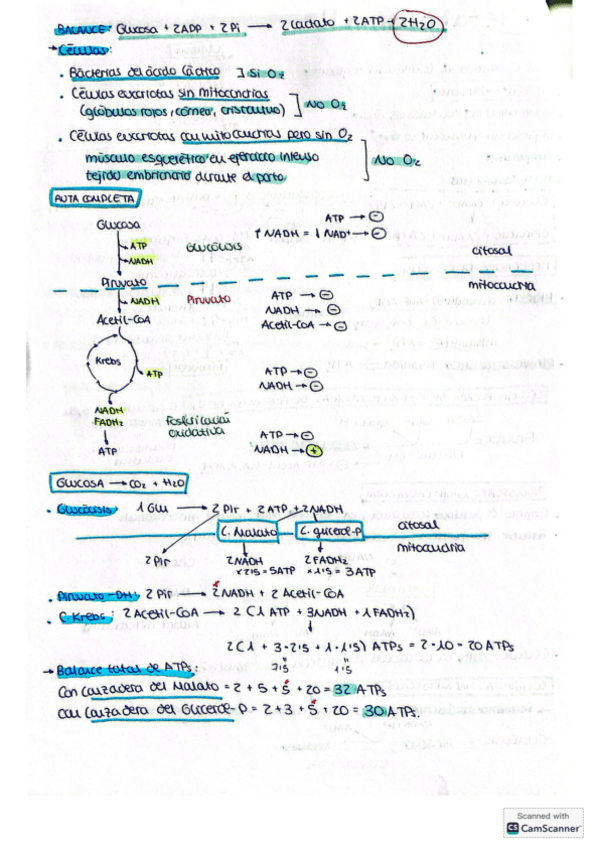 BALANCE: Glucosa + 2ADP + 2Pi → 2Lactato + 2ATP + 2H₂O
→ Células:
• Bacterias del ácido láctico ] Si O₂
• Células eucariotas sin mitocondrias
(glóbulos rojos, córnea, cristalino) ] No O₂
• Células eucariotas con mitocondrias pero sin O₂
músculo esquelético en ejercicio intenso
tejido embrionario durante el parto ] No O₂
RUTA COMPLETA
Glucosa
ATP → ⊖
→ ATP
Glucólisis
↑ NADH = ↓ NAD⁺ → ⊖
→ NADH
citosol
Piruvato
mitocondria
→ NADH
Piruvato
ATP → ⊖
NADH → ⊖
Acetil-CoA
Acetil-CoA → ⊖
Krebs
→ ATP
ATP → ⊖
NADH → ⊖
NADH
FADH₂
Fosforilación
oxidativa
ATP → ⊖
ATP
NADH → ⊕
GLUCOSA → CO₂ + H₂O
• Glucólisis: 1 Glu → 2 Pir + 2 ATP + 2 NADH
citosol
C. Malato
C. glicerol-P
mitocondria
2 Pir
2 NADH
2 FADH₂
×2'5 = 5ATP
×1'5 = 3ATP
• Piruvato-DH: 2 Pir → 2 NADH + 2 Acetil-CoA
• C. Krebs: 2 Acetil-CoA → 2 (1 ATP + 3NADH + 1 FADH₂)
2 (1 + 3·2'5 + 1·1'5) ATPs = 2·10 = 20 ATPs
2'5 1'5
→ Balance total de ATPs:
Con Lanzadera del Malato = 2 + 5 + 5 + 20 = 32 ATPs
Con Lanzadera del Glicerol-P = 2 + 3 + 5 + 20 = 30 ATPs.
Scanned with
CS CamScanner